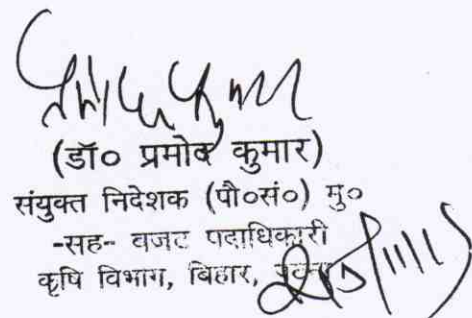 (डॉ० प्रमोद कुमार)
संयुक्त निदेशक (पौ०सं०) मु०
-सह- बजट पदाधिकारी
कृषि विभाग, बिहार, पटना